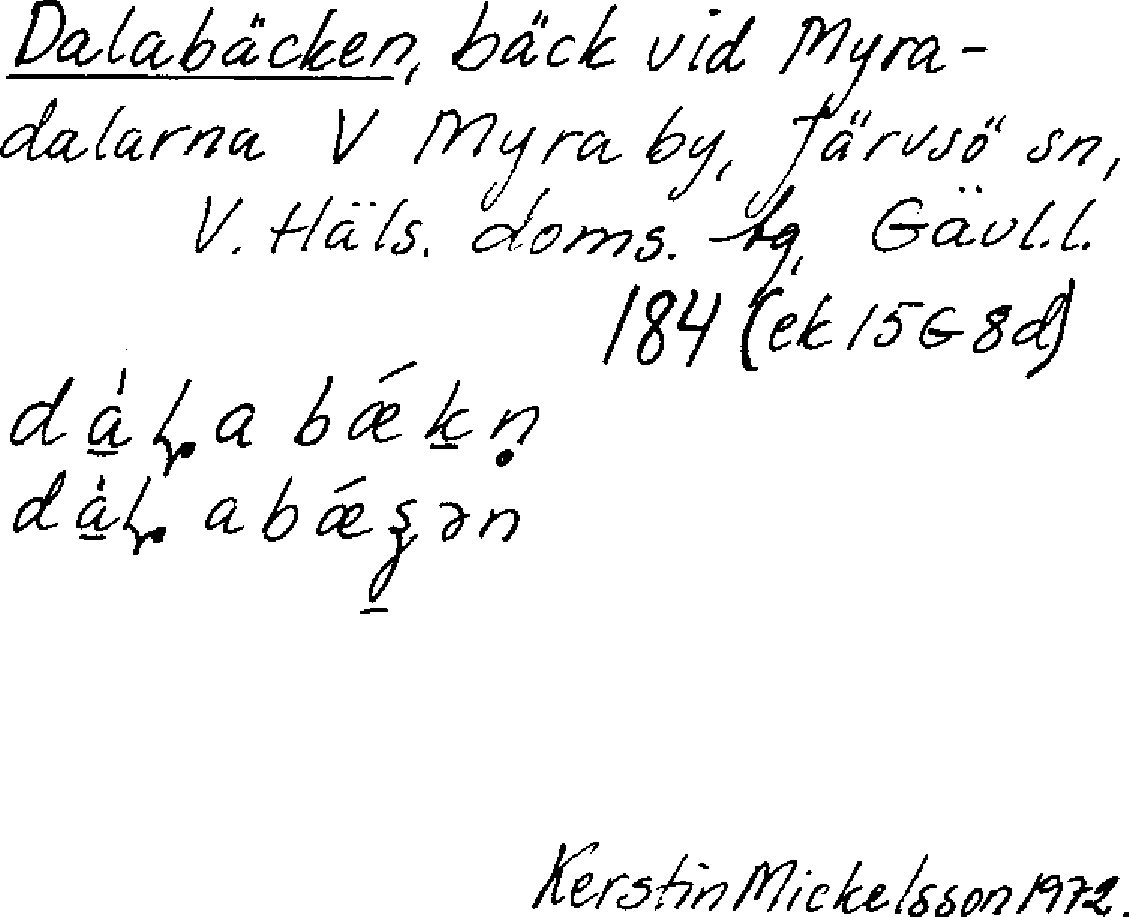 Dalabäcken, bäck vid Myra-
dalarna V Myra by, Järvsö sn,
V. Häls. doms. tg, Gävl.l.
184 (ek 15G8d)
Kerstin Mickelsson 1972.